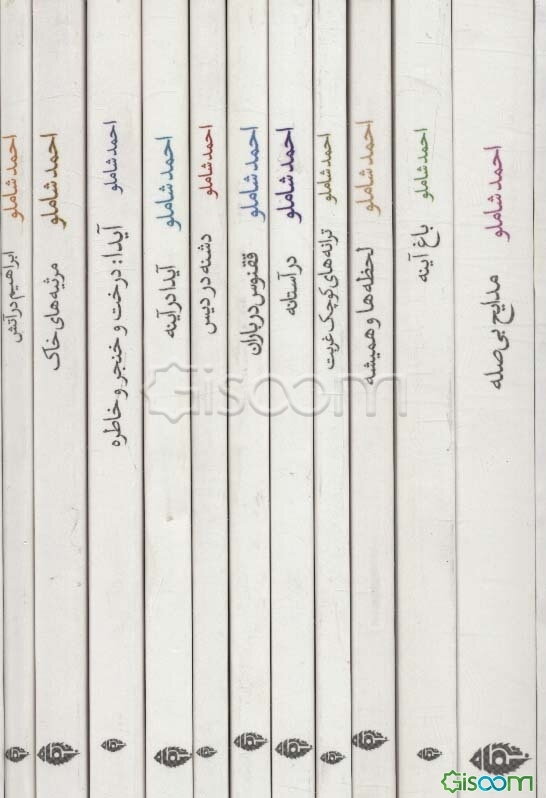 احمد شاملو
مدایح بی‌صله
احمد شاملو
باغ آینه
احمد شاملو
لحظه‌ها و همیشه
احمد شاملو
ترانه‌های کوچک غربت
احمد شاملو
در آستانه
احمد شاملو
ققنوس در باران
احمد شاملو
دشنه در دیس
احمد شاملو
آیدا در آینه
احمد شاملو
آیدا: درخت و خنجر و خاطره
احمد شاملو
مرثیه‌های خاک
احمد شاملو
ابراهیم در آتش
Gisoom
Gisoom.com